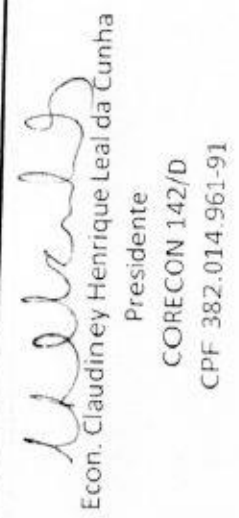 Econ. Claudiney Henrique Leal da Cunha
Presidente
CORECON 142/D
CPF 382.014.961-91